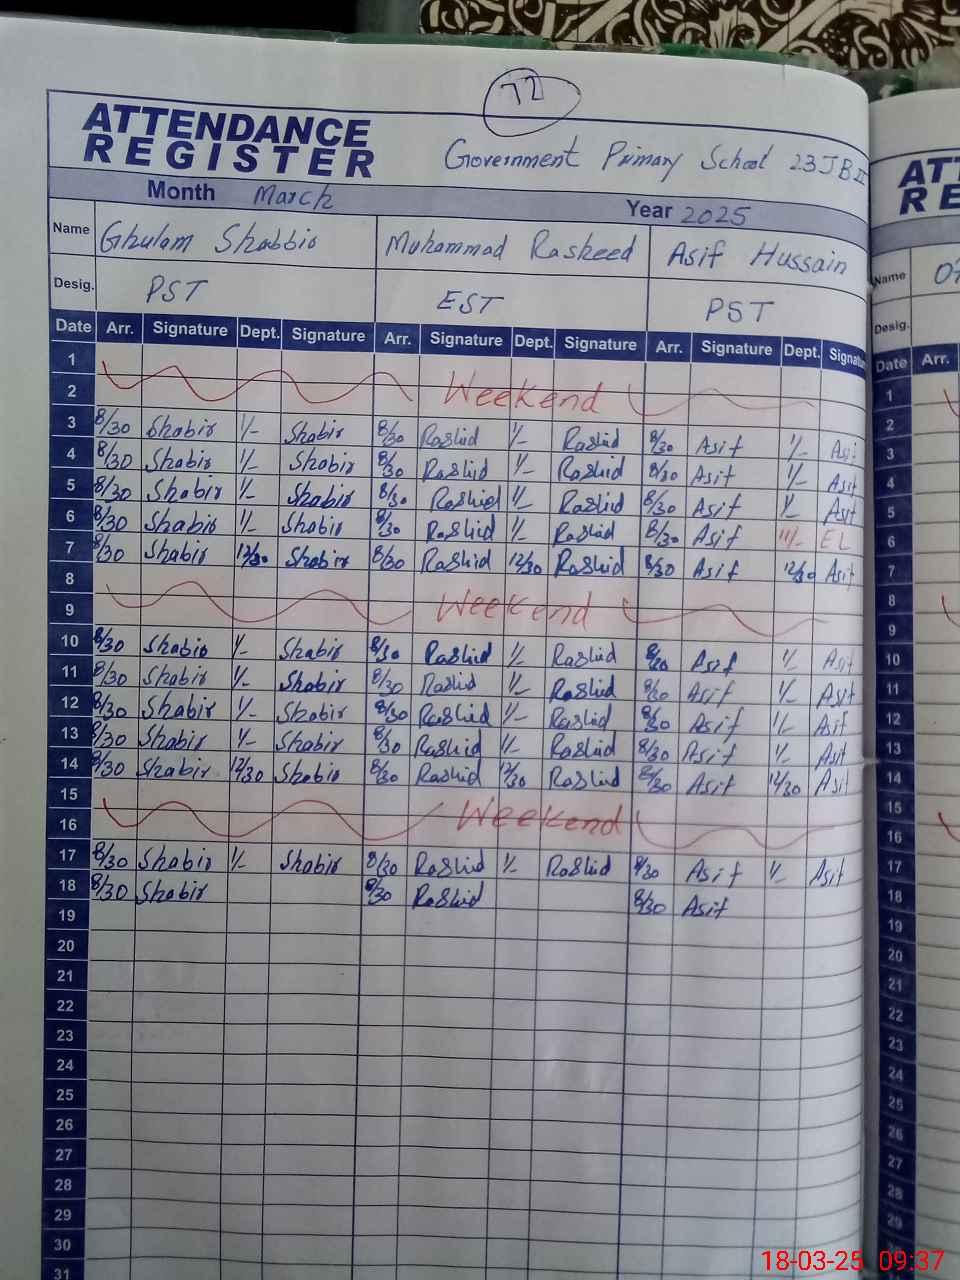 72
ATTENDANCE
REGISTER
Government Primary School 23JB
Month March Year 2025
Name Ghulam Shabbir Muhammad Rasheed Asif Hussain
Desig. PST EST PST
Date Arr. Signature Dept. Signature Arr. Signature Dept. Signature Arr. Signature Dept. Signatu
1
2 Weekend
3 8/30 Shabir 1/- Shabir 8/30 Rashid 1/- Rashid 8/30 Asif 1/- Asif
4 8/30 Shabir 1/- Shabir 8/30 Rashid 1/- Rashid 8/30 Asif 1/- Asif
5 8/30 Shabir 1/- Shabir 8/30 Rashid 1/- Rashid 8/30 Asif 1/- Asif
6 8/30 Shabir 1/- Shabir 8/30 Rashid 1/- Rashid 8/30 Asif 11/- EL
7 8/30 Shabir 12/30 Shabir 8/30 Rashid 12/30 Rashid 8/30 Asif 12/30 Asif
8
9 Weekend
10 8/30 Shabir 1/- Shabir 8/30 Rashid 1/- Rashid 8/30 Asif 1/- Asif
11 8/30 Shabir 1/- Shabir 8/30 Rashid 1/- Rashid 8/30 Asif 1/- Asif
12 8/30 Shabir 1/- Shabir 8/30 Rashid 1/- Rashid 8/30 Asif 1/- Asif
13 8/30 Shabir 1/- Shabir 8/30 Rashid 1/- Rashid 8/30 Asif 1/- Asif
14 8/30 Shabir 12/30 Shabir 8/30 Rashid 12/30 Rashid 8/30 Asif 12/30 Asif
15
16 Weekend
17 8/30 Shabir 1/- Shabir 8/30 Rashid 1/- Rashid 8/30 Asif 1/- Asif
18 8/30 Shabir 8/30 Rashid 8/30 Asif
19
20
21
22
23
24
25
26
27
28
29
30
31
ATT
RE
Name
Desig.
Date Arr.
1
2
3
4
5
6
7
8
9
10
11
12
13
14
15
16
17
18
19
20
21
22
23
24
25
26
27
28
29
18-03-25 09:37